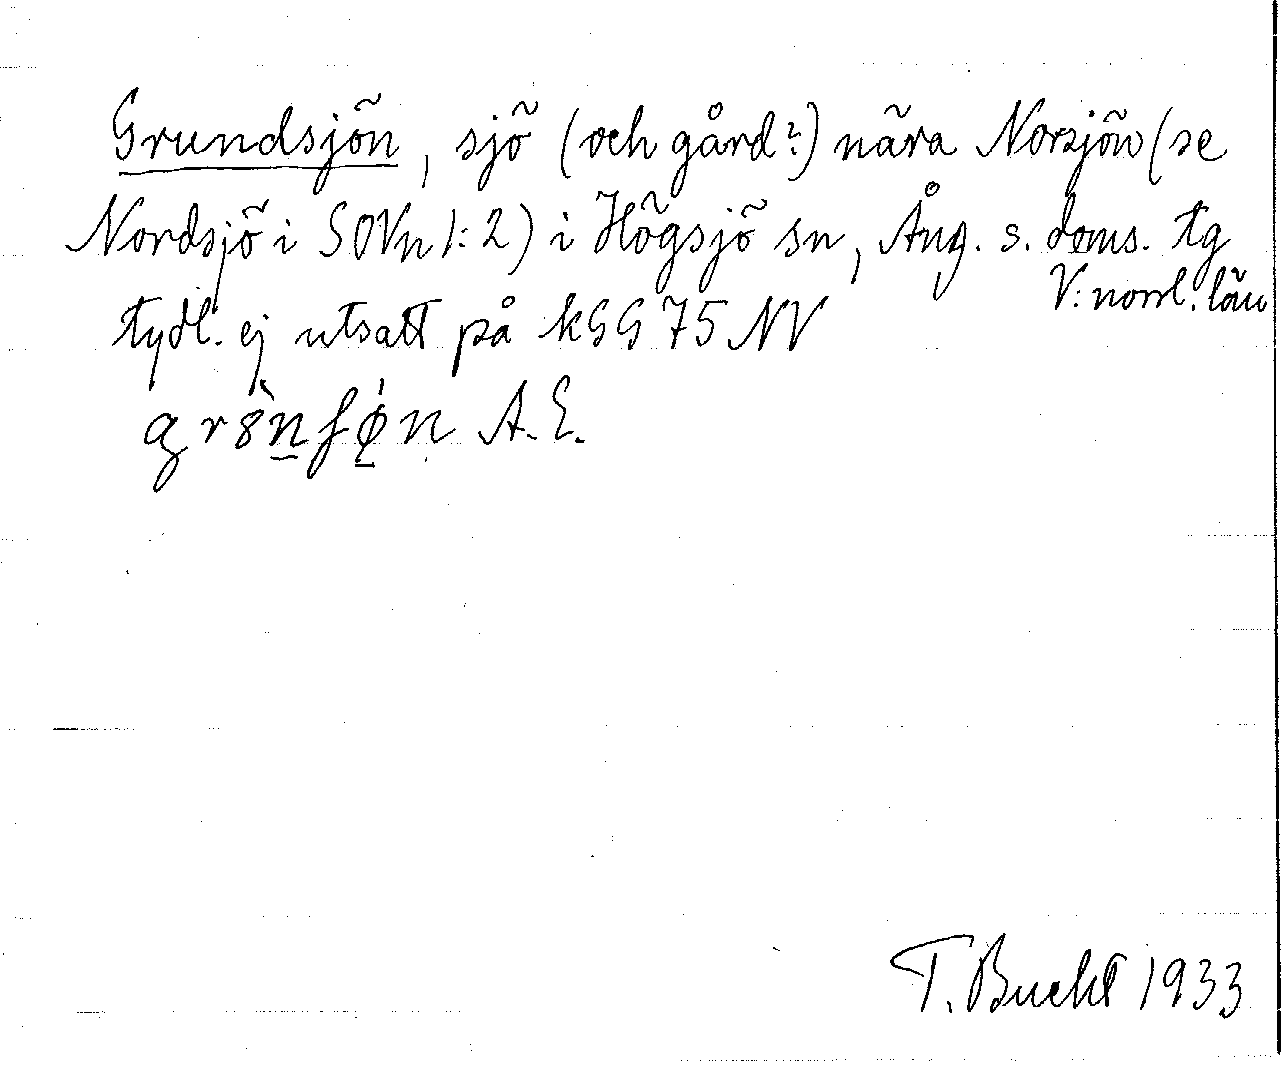 Grundsjön, sjö (och gård?) nära Norsjön (se
Nordsjö i SOVn 1:2) i Högsjö sn, Ång. s. doms. tg
V:norrl. län
tydl. ej utsatt på kGG 75 NV
A.E.
T. Bucht 1933